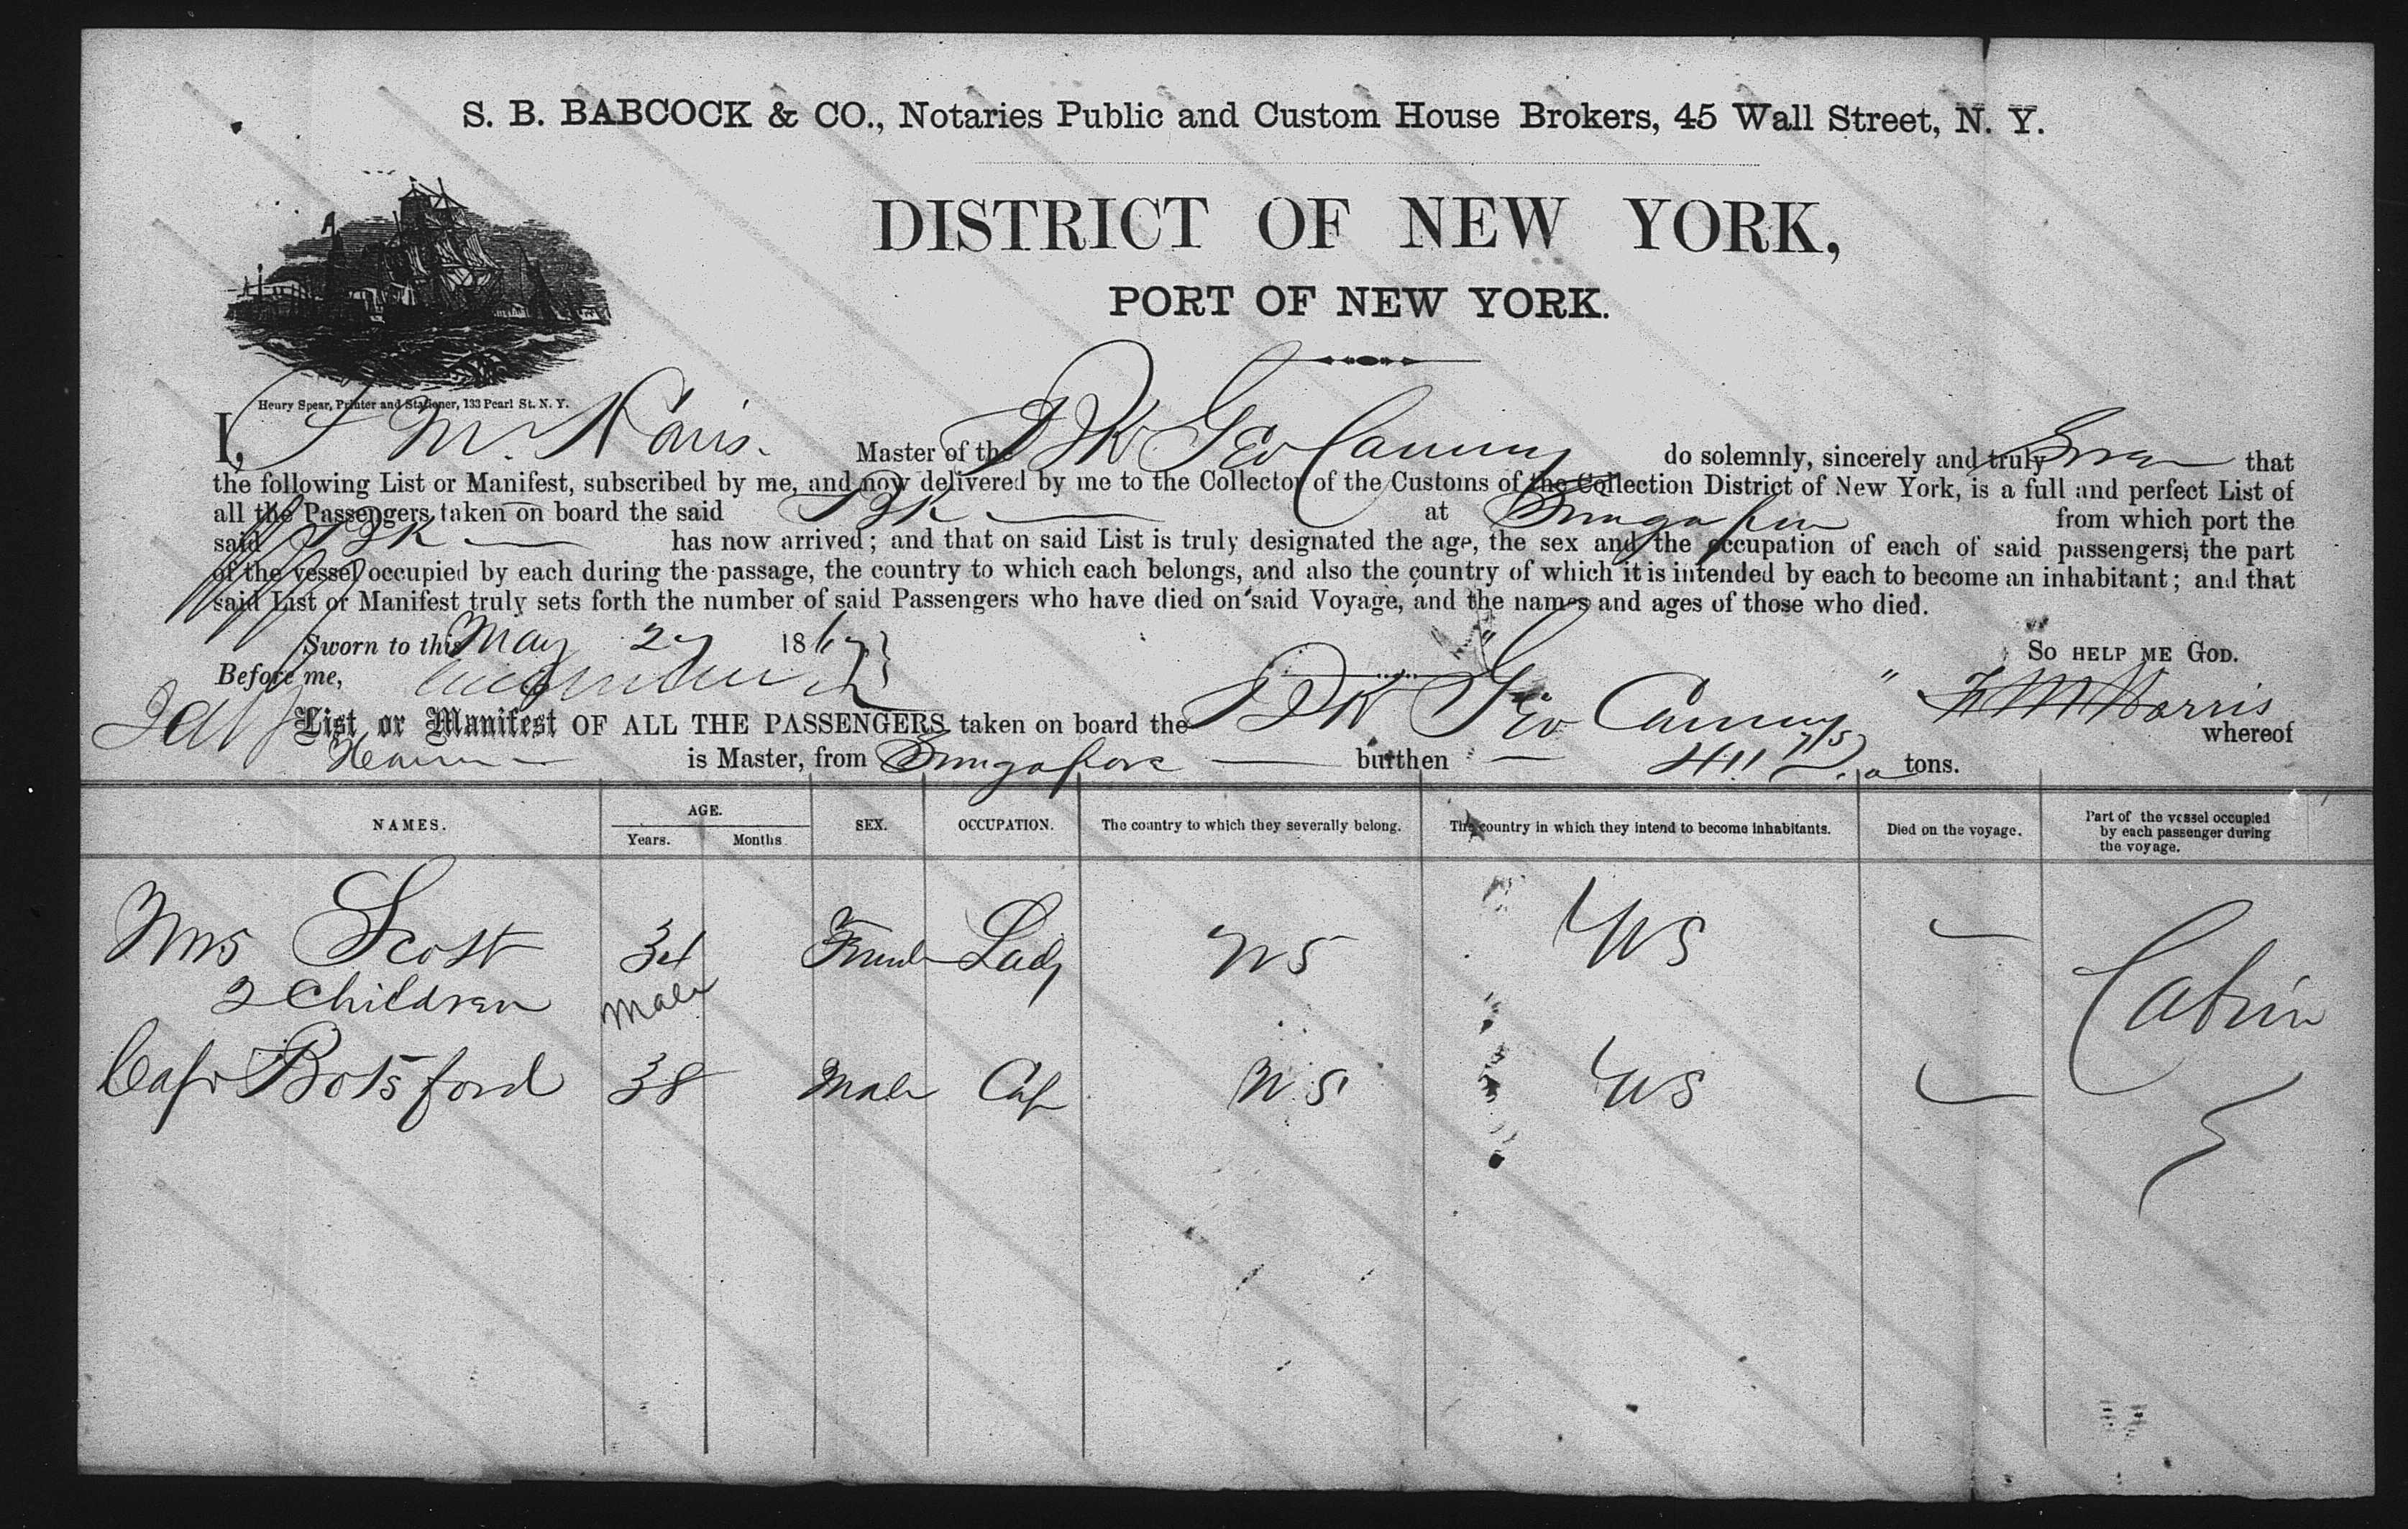 S. B. BABCOCK & CO., Notaries Public and Custom House Brokers, 45 Wall Street, N. Y.
DISTRICT OF NEW YORK,
PORT OF NEW YORK.
Henry Spear, Printer and Stationer, 133 Pearl St. N. Y.
I, Master of the BK Geo Canning do solemnly, sincerely and truly Swear that
the following List or Manifest, subscribed by me, and now delivered by me to the Collector of the Customs of the Collection District of New York, is a full and perfect List of
all the Passengers taken on board the said BK at Singapore from which port the
said BK has now arrived; and that on said List is truly designated the age, the sex and the occupation of each of said passengers, the part
of the vessel occupied by each during the passage, the country to which each belongs, and also the country of which it is intended by each to become an inhabitant; and that
said List or Manifest truly sets forth the number of said Passengers who have died on said Voyage, and the names and ages of those who died.
Sworn to this May 27 1867
SO HELP ME GOD.
Before me,
List or Manifest OF ALL THE PASSENGERS taken on board the BK "Geo Canning" whereof
is Master, from Singapore burthen 411 tons.
NAMES. AGE. Years. Months SEX. OCCUPATION. The country to which they severally belong. The country in which they intend to become inhabitants. Died on the voyage. Part of the vessel occupied by each passenger during the voyage.
Mrs Scott 34 Lady US US Cabin
2 Children Male
Capt Botsford 38 Male Cap US US